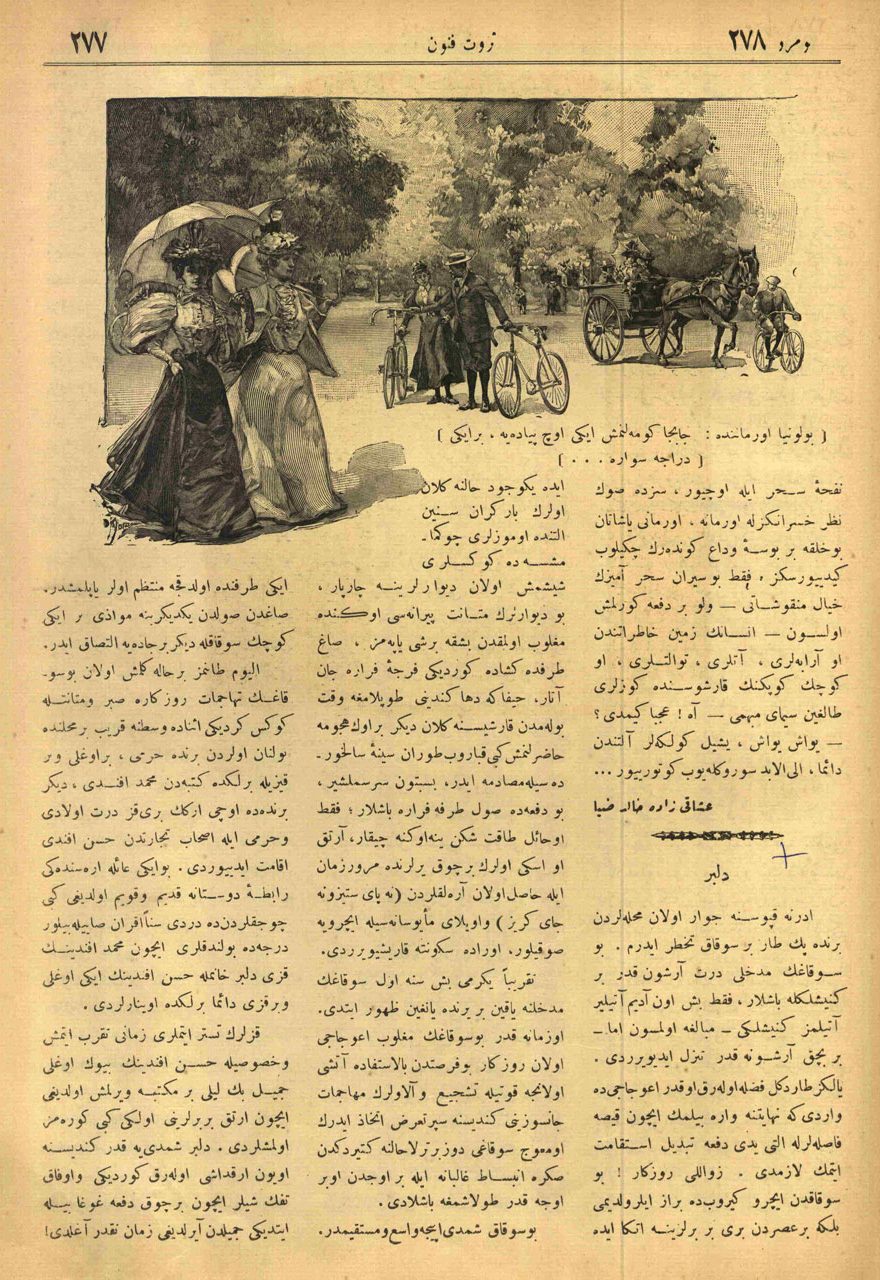 نومرو ٢٧٨
ثروت فنون
٢٧٧
( بولونيا اورماننده : جابجا كومه‌لنمش ايكى اوچ پياده‌يه ، برايكى )
( دراجه سواره . . . )
نفحۀ سحر ايله اوچيور ، سزده صوك
نظر خسرانكزله اورمانه ، اورمانى ياشاتان
بوخلقه بر بوسۀ وداع كوندەرك چكيلوب
كيدييورسكز ، فقط بوسيران سحر آميزك
خيال منقوشاتى — ولو بر دفعه كورلمش
اولسون — انسانك زمين خاطراتندن
او آرابه‌لرى ، آتلرى ، توالتلرى ، او
كوچك كوپكنك قارشوسنده كوزلرى
طالغين سيماى مبهمى — آه ! عجبا كيمدى ؟
— يواش يواش ، يشيل كولكه‌لر آلتندن
دائما ، الى‌الابد سوروكله‌يوب كوتورييور ...
عشاقى زاده خالد ضيا
دلبر
ادرنه قپوسنه جوار اولان محله‌لردن
برنده پك طار بر سوقاق تخطر ايدرم . بو
سوقاغك مدخلى درت آرشون قدر بر
كنيشلكله باشلار ، فقط بش اون آديم آتيلير
آتيلمز كنيشلكى — مبالغه اولمسون اما —
بر بچق آرشونه قدر تنزل ايديويرردى .
يالكز طاردكل فضله‌اوله‌رق‌اوقدر اعوجاجى‌ده
واردى‌كه نهايتنه واره بيلمك ايچون قيصه
فاصله‌لرله التى يدى دفعه تبديل استقامت
ايتمك لازمدى . زواللى روزكار ! بو
سوقاقدن ايچرو كيروب‌ده براز ايلرولديمى
بلكه برعصردن برى بر برلرينه اتكا ايده
ايده يكوجود حالنه كلان
اولرك باركران سنين
التنده اوموزلرى چوكمـ
مشسه ده كوكسلرى
شيشمش اولان ديوارلرينه چارپار ،
بو ديوارلرك متانت پيرانه‌سى اوكنده
مغلوب اولمقدن بشقه برشى ياپه‌مز ، صاغ
طرفده كشاده كورديكى فرجۀ فراره جان
آتار، حيفاكه دها كندينى طوپلامغه وقت
بوله‌مدن قارشيسنه كلان ديكر براوك هجومه
حاضرلنمش كبى قباروب طوران سينۀ سالخورـ
ده‌سيله مصادمه ايدر، بستون سرسملشير ،
بو دفعه‌ده صول طرفه فراره باشلار ؛ فقط
اوحائل طاقت شكن ينه اوكنه چيقار، آرتق
او اسكى اولرك برچوق يرلرنده مرورزمان
ايله حاصل‌اولان آره‌لقلردن ( نه پاى ستيزونه
جاى كريز ) واويلاى مأيوسانه‌سيله ايچرويه
صوقيلور. اوراده سكونته قاريشيويرردى.
تقريباً يكرمى بش سنه اول سوقاغك
مدخلنه ياقين بر يرنده يانغين ظهور ايتدى.
اوزمانه قدر بوسوقاغك مغلوب اعوجاجى
اولان روزكار بوفرصتدن بالاستفاده آتشى
اولانجه قوتيله تشجيع و آلاولرك مهاجمات
جانسوزينى كنديسنه سپرتعرض اتخاذ ايدرك
اومعوج سوقاغى دوزبرترلاحالنه كتيردكدن
صكره انبساط غالبانه ايله بر اوجدن اوبر
اوجه قدر طولاشمغه باشلادى .
بوسوقاق شمدى‌اييجه‌واسع‌ومستقيمدر.
ايكى طرفنده اولدقجه منتظم اولر ياپلمشدر.
صاغدن صولدن يكديكرينه موازى بر ايكى
كوچك سوقاقله ديكر برجاده‌يه التصاق ايدر.
اليوم طانمز برحاله كلمش اولان بوسوـ
قاغك تهاجمات روزكاره صبر ومتانتله
كوكس كرديكى اثناده وسطنه قريب برمحلنده
بولنان اولردن برنده حرمى ، براوغلى وبر
قيزيله برلكده كتبه‌دن محمد افندى ، ديكر
برنده‌ده اوچى اركك برى‌قز درت اولادى
وحرمى ايله اصحاب تجارتدن حسن افندى
اقامت ايدييوردى . بوايكى عائله اره‌سنده‌كى
رابطۀ دوستانه قديم وقويم اولديغى كبى
چوجقلردن‌ده دردى سناًاقران صاييله‌بيلور
درجه‌ده بولندقلرى ايچون محمد افندينك
قزى دلبر خانمله حسن افندينك ايكى اوغلى
وبرقزى دائما برلكده اوينارلردى .
قزلرك تستر ايتملرى زمانى تقرب ايتمش
وخصوصيله حسن افندينك بيوك اوغلى
جميل بك ليلى بر مكتبه ويرلمش اولديغى
ايچون ارتق بربرلرينى اولكى كبى كوره‌مز
اولمشلردى . دلبر شمدى‌يه قدر كنديسنه
اويون ارقداشى اوله‌رق كورديكى واوفاق
تفك شيلر ايچون برچوق دفعه غوغا بيله
ايتديكى جميلدن آيرلديغى زمان نقدر آغلدى!